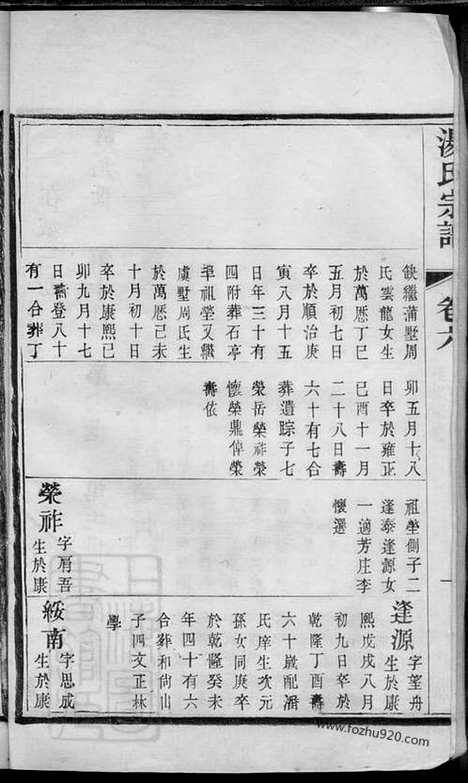 湯氏宗譜
卷六
一
缺繼蒲墅周
氏雲龍女生
於萬厯丁巳
五月初七日
卒於順治庚
寅八月十五
日年三十有
四附葬石亭
牟祖塋又繼
虞墅周氏生
於萬厯己未
十月初十日
卒於康熙己
卯九月十七
日壽登八十
有一合葬丁
卯五月十八
日卒於雍正
己酉十一月
二十八日壽
六十有七合
葬遺踪子七
榮岳榮祚榮
懷榮鼎倬榮
壽依
祖塋側子二
逢泰逢源女
一適芳庄李
懷選
榮祚
字眉吾
生於康
逢源
字望舟
生於康
熙戊戌八月
初九日卒於
乾隆丁酉壽
六十歲配潘
氏庠生次元
孫女同庚卒
於乾隆癸未
年四十有六
合葬和尙山
子四文正林
學
綏南
字思成
生於康
www.fozhu920.com